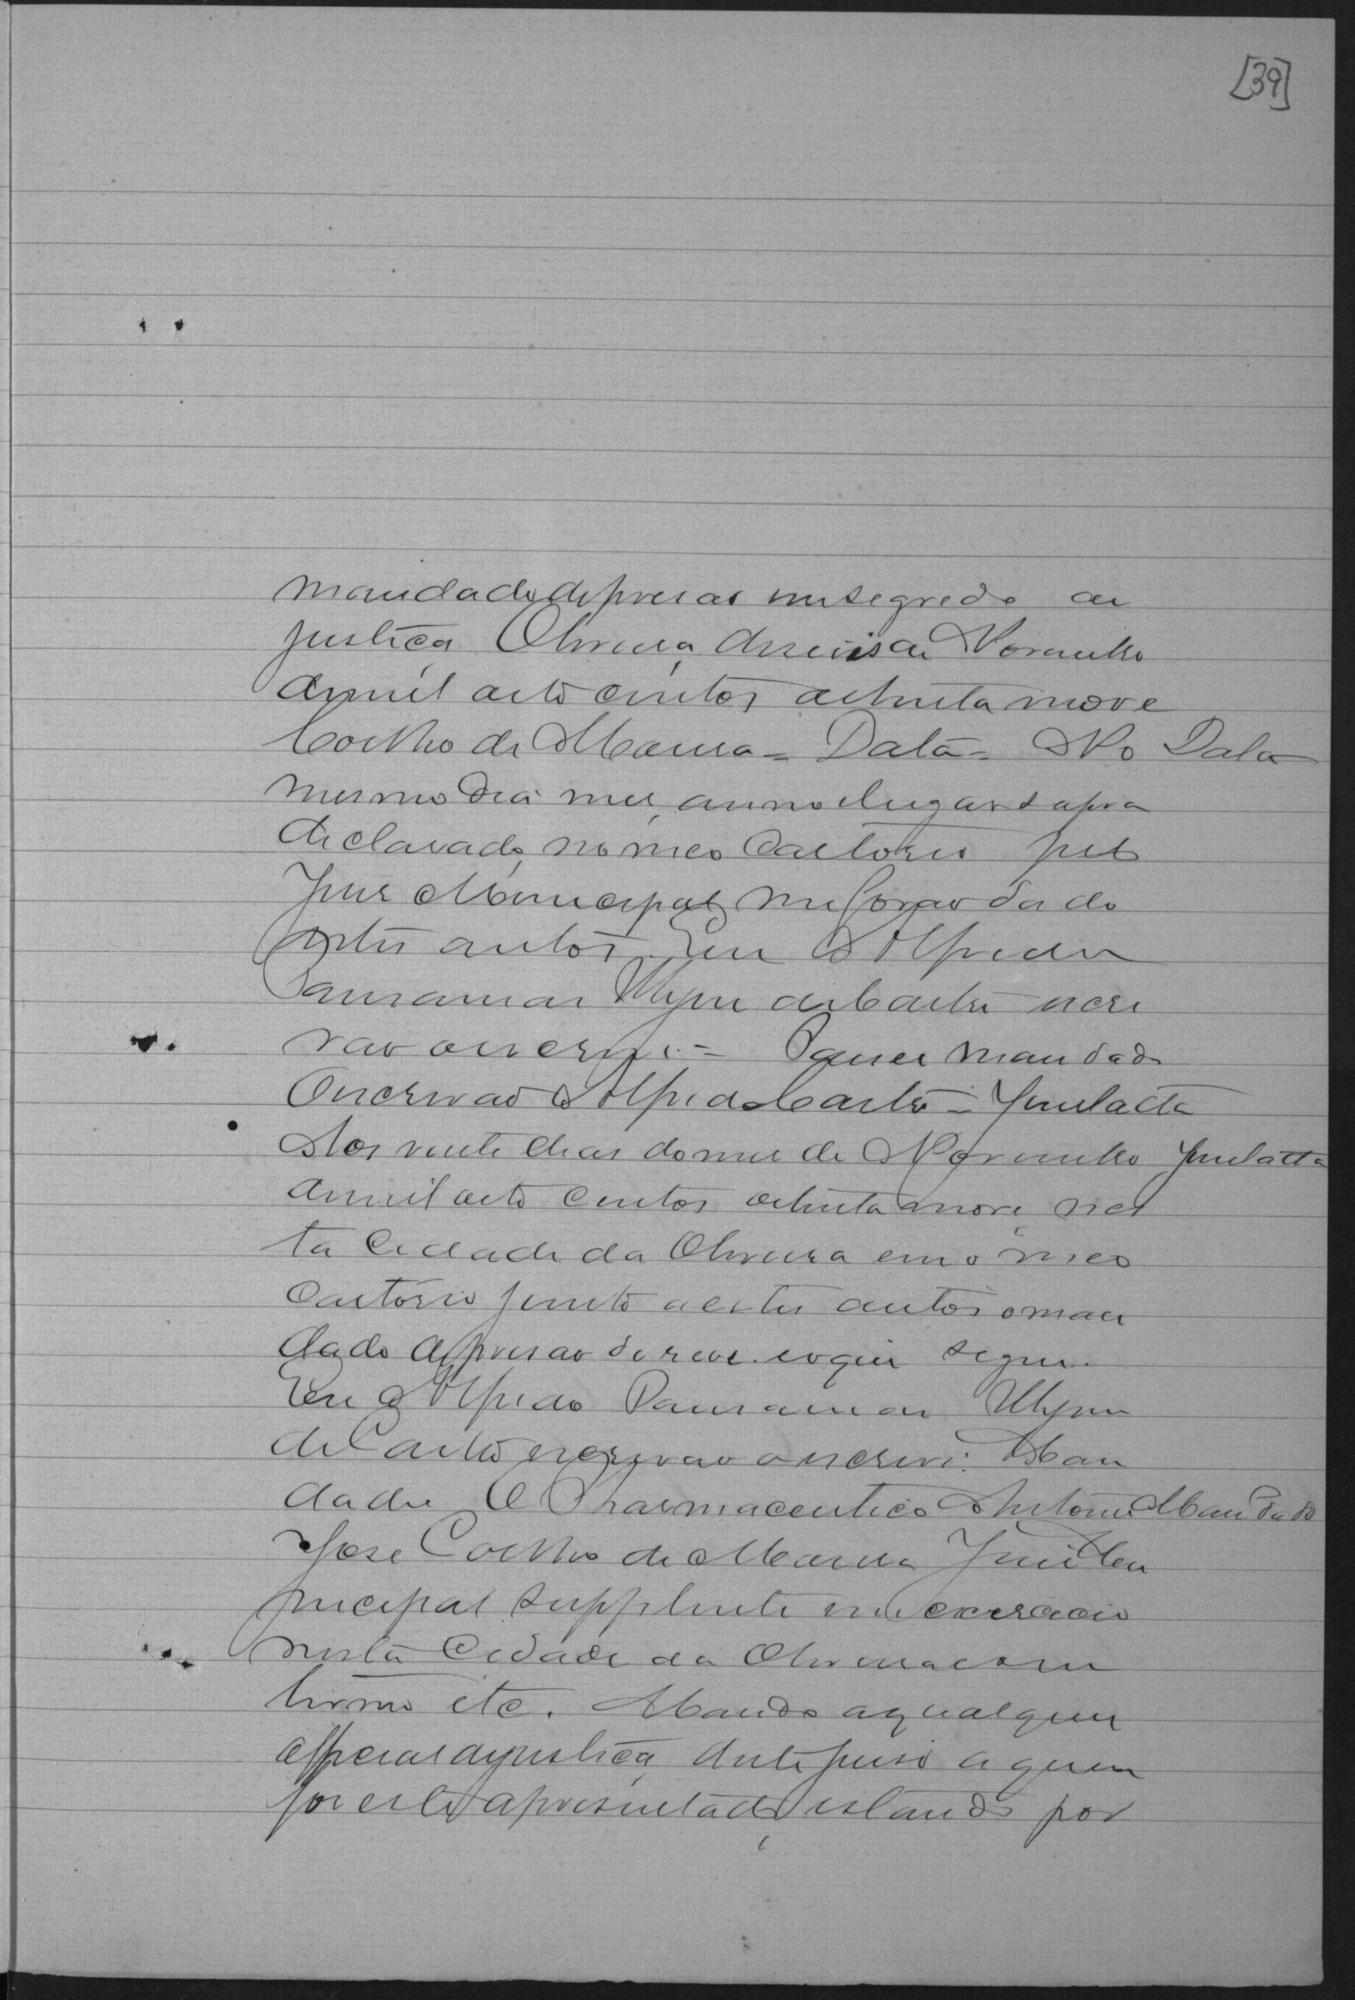 [39]
mandado de prisão em segredo de
justiça, Oliveira, dezeseis de Novembro
de mil oito centos oitenta nove
Coelho de Moura = Data = No Data
mesmo dia mez, anno e lugar supra
declarado, no meo Cartorio pelo
Juiz Municipal me forão dado
estes autos. Eu Alfredo
Pausanias Ulysses de Castro escri
vão o escrevi. = Passei mandado
O escrivão Alfredo Castro = Juntada
Aos vinte dias do mez de Novembro Juntada
de mil oito centos oitenta nove, nes
ta Cidade da Oliveira em o meo
Cartorio junto a estes autos o man
dado de prisão do reo e é o que segue.
Eu Alfredo Pausanias Ulysses
de Castro escrivão o escrevi. Man
dado O Pharmaceutico Antonio Mandado
José Coelho de Moura Juiz Mu
nicipal supplente em exercicio
nesta Cidade da Oliveira e seu
termo etc. Mando a qualquer
official de justiça deste juiso a quem
for este apresentado, estando por